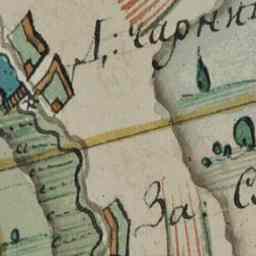 Д: чарни
За
С